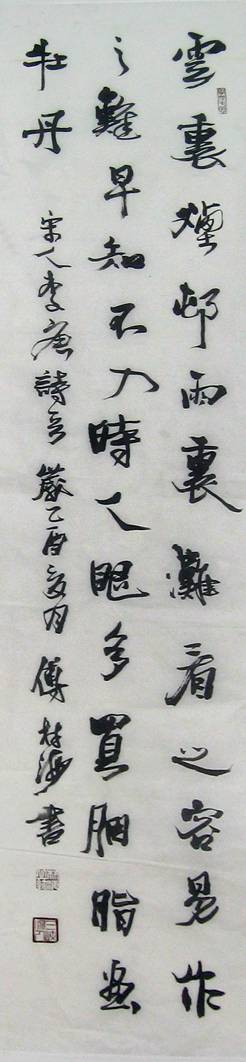 雲裏煙邨雨裏灘看之容易作
之難早知不入時人眼多買胭脂畫
牡丹 宋人李唐詩 歲乙酉 月 傅 海書